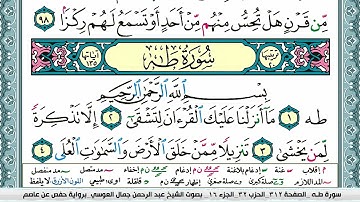 مِّن قَرْنٍ هَلْ تُحِسُّ مِنْهُم مِّنْ أَحَدٍ أَوْ تَسْمَعُ لَهُمْ رِكْزًا ٩٨
سُورَةُ طه
بِسْمِ اللَّهِ الرَّحْمَٰنِ الرَّحِيمِ
طه ١ مَا أَنزَلْنَا عَلَيْكَ الْقُرْءَانَ لِتَشْقَىٰ ٢ إِلَّا تَذْكِرَةً
لِّمَن يَخْشَىٰ ٣ تَنزِيلًا مِّمَّنْ خَلَقَ الْأَرْضَ وَالسَّمَٰوَٰتِ الْعُلَى ٤
سورة طه، الصفحة ٣١٢ الجزء ١٦ بصوت الشيخ عبد الرحمن جمال العوسي برواية حفص عن عاصم